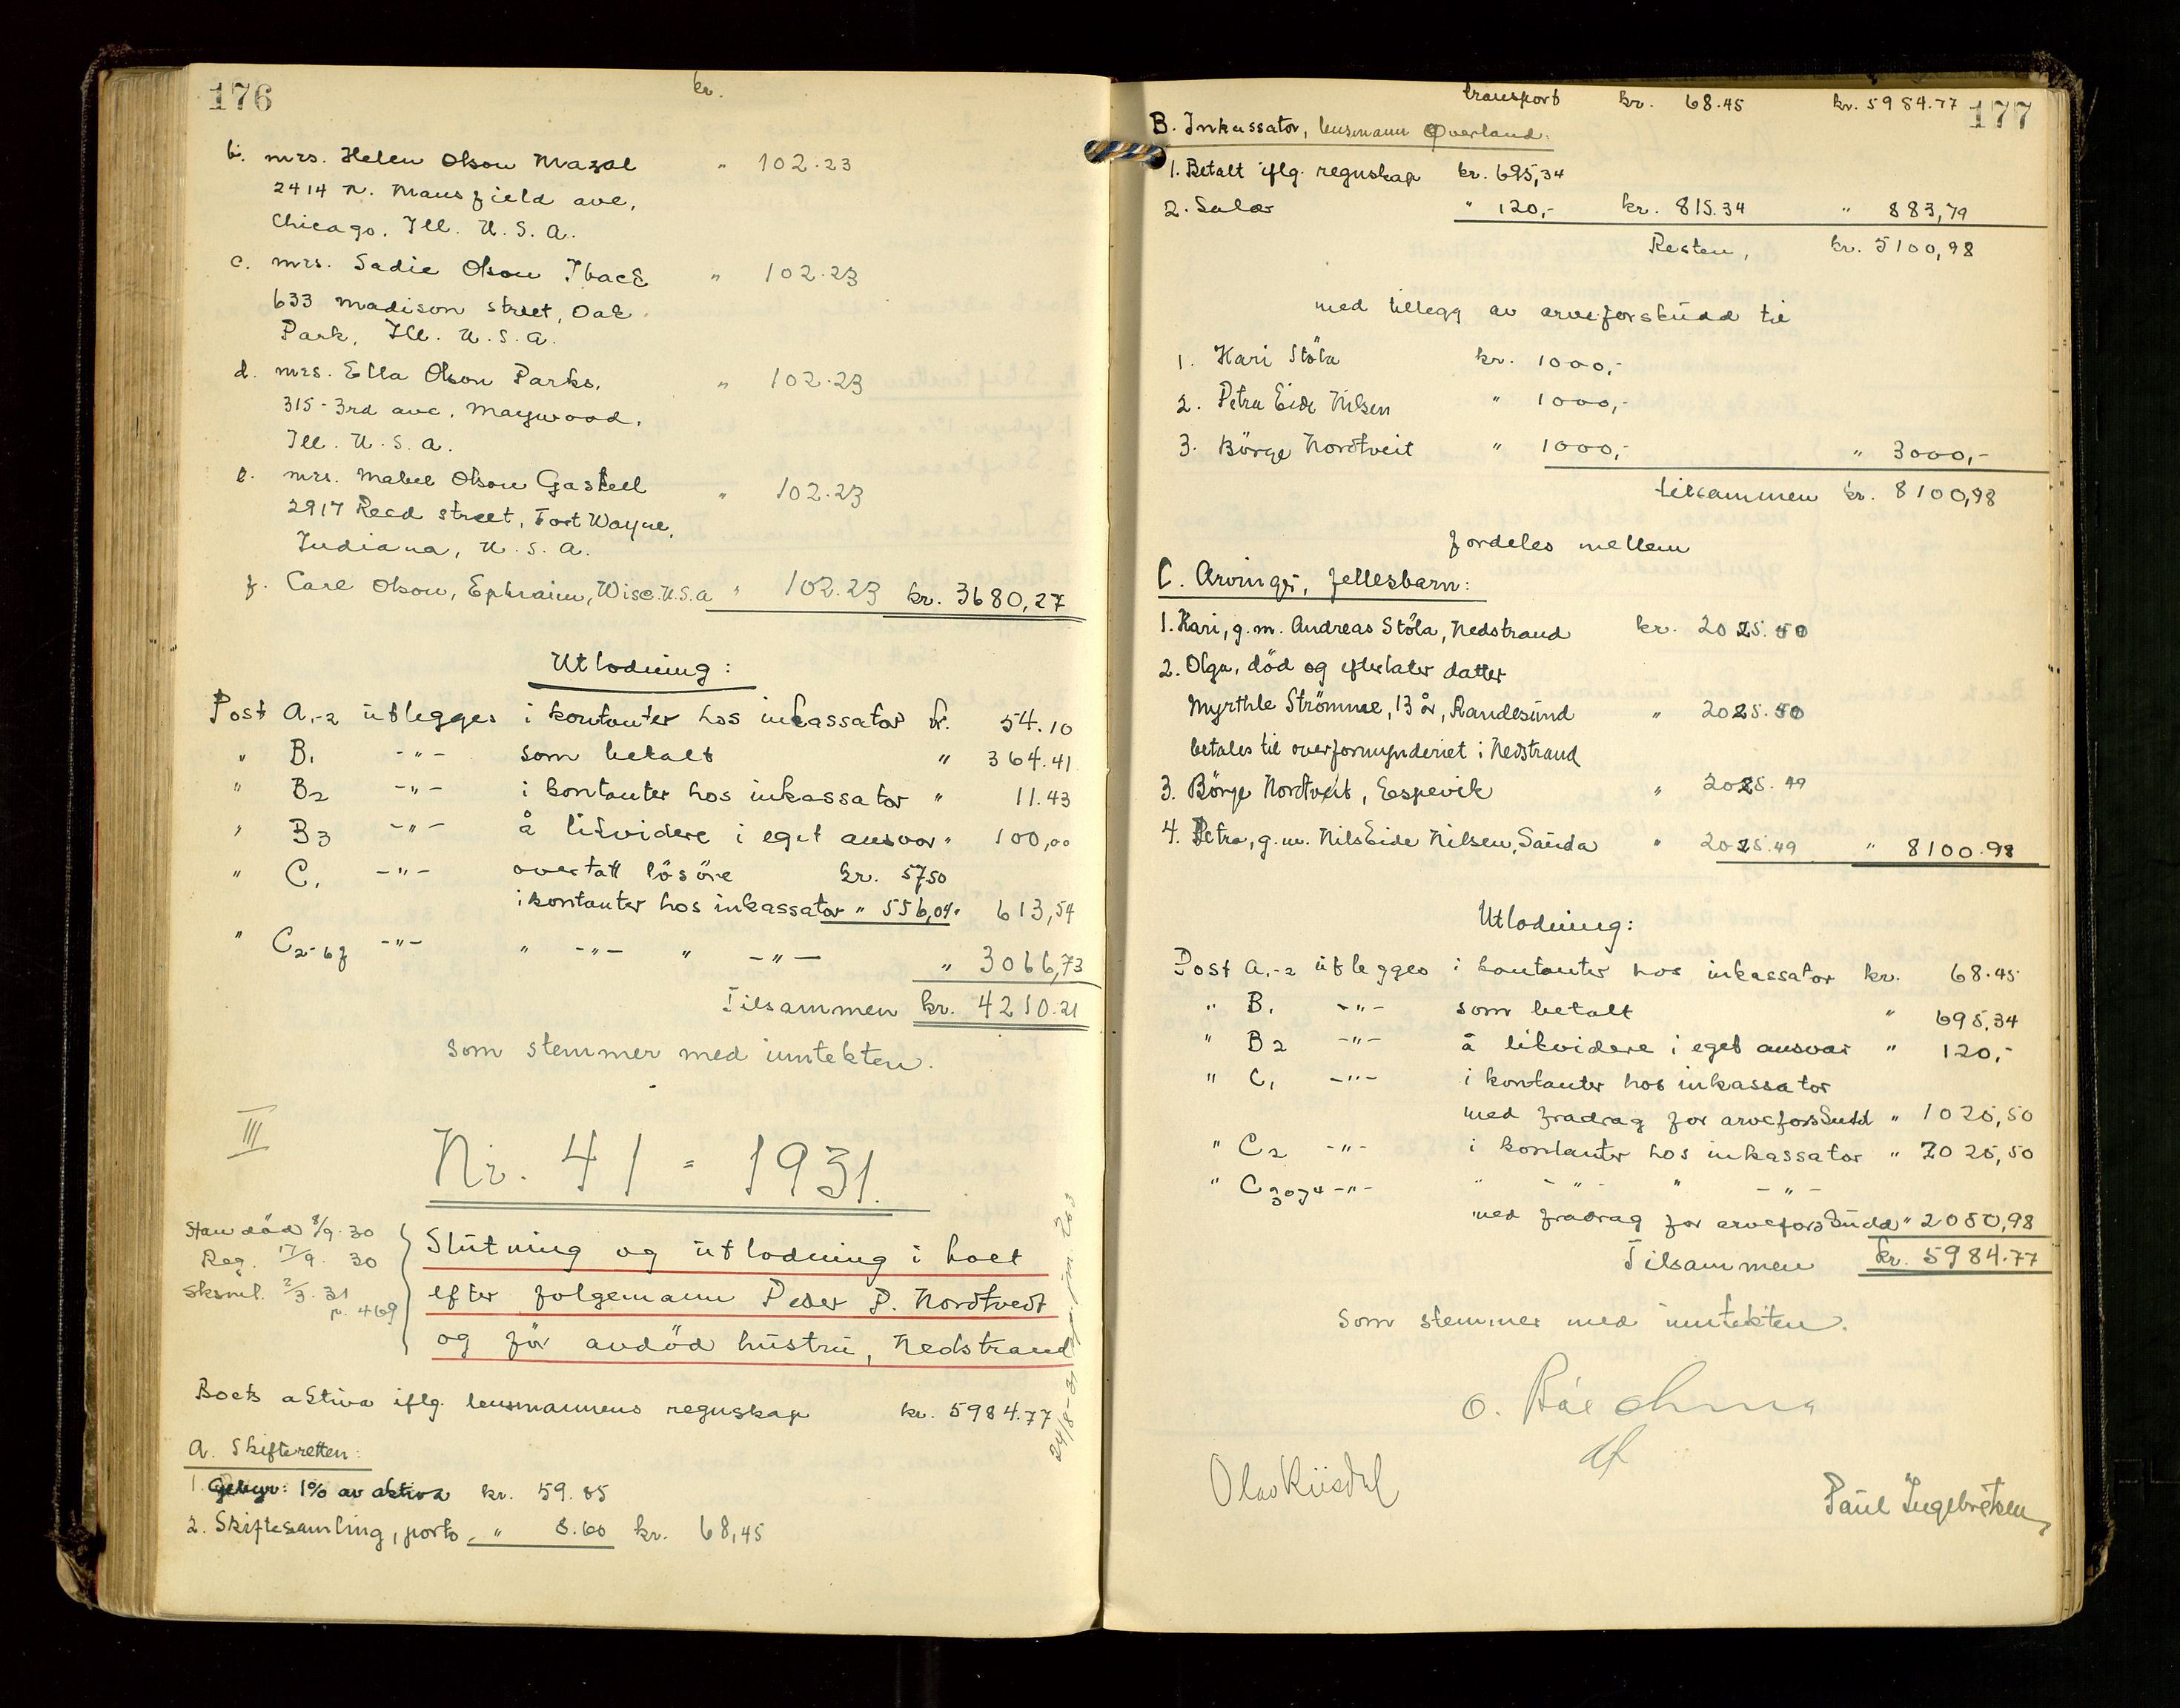 176
kr.
b. mrs. Helen Olson Mazal " 102.23
2414 N. Mansfield ave,
Chicago, Ill. U. S. A.
c. mrs. Sadie Olson Iback " 102.23
633 Madison street, Oak
Park, Ill. U. S. A.
d. mrs. Ella Olson Parks, " 102.23
315-3rd ave, Maywood,
Ill. U. S. A.
e. mrs. Mabel Olson Gaskell " 102.23
2917 Reed street, Fort Wayne,
Indiana, U. S. A.
f. Carl Olson, Ephraim, Wisc. U.S.A " 102.23 kr. 3680,27
Utlodning:
Post A.1-2 utlegges i kontanter hos inkassator kr. 54.10
" B1 -"- som betalt " 364.41
" B2 -"- i kontanter hos inkassator " 11.43
" B3 -"- å likvidere i eget ansvar " 100,00
" C1 -"- overtatt lösöre kr. 57.50
i kontanter hos inkassator " 556,04 " 613,54
" C2-6f -"- " -"- " -"- " 3066,73
Tilsammen kr. 4210.21
som stemmer med inntekten.
III
Nr. 41 = 1931.
Han död 8/9. 30
Reg. 17/9. 30
Sksml. 2/3. 31
p. 469
Slutning og utlodning i boet
efter folgemann Peder P. Nordtvedt
og før avdöd hustru, Nedstrand
Boets aktiva iflg. lensmannens regnskap kr. 5984.77
A. Skifteretten:
1. Gebyr: 1% av aktiva kr. 59.85
2. Skiftesamling, porto " 8.60 kr. 68,45
177
transport kr. 68.45 kr. 5984.77
B. Inkassator, lensmann Øverland:
1. Betalt iflg. regnskap kr. 695,34
2. Salær " 120,- kr. 815.34 " 883,79
Resten, kr. 5100,98
med tillegg av arveforskudd til
1. Kari Stöla kr. 1000,-
2. Petra Eide Nilsen " 1000,-
3. Börge Nordtveit " 1000,- " 3000,-
tilsammen kr. 8100,98
fordeles mellem
C. Arvinger, fellesbarn:
1. Kari, g.m. Andreas Stöla, Nedstrand kr. 2025.50
2. Olga, död og efterlater datter
Myrthle Strömme, 13 år, Randesund " 2025.50
betales til overformynderiet i Nedstrand
3. Börge Nordtveit, Espevik " 2025.49
4. Petra, g.m. Nils Eide Nilsen, Sauda " 2025.49 " 8100.98
Utlodning:
Post A.1-2 utlegges i kontanter hos inkassator kr. 68.45
" B1 -"- som betalt " 695,34
" B2 -"- å likvidere i eget ansvar " 120,-
" C1 -"- i kontanter hos inkassator
med fradrag for arveforskudd " 1025,50
" C2 -"- i kontanter hos inkassator " 2025,50
" C3 og 4 -"- " -"- " -"-
med fradrag for arveforskudd " 2050,98
Tilsammen kr. 5984.77
som stemmer med inntekten.
Paul Ingebretsen